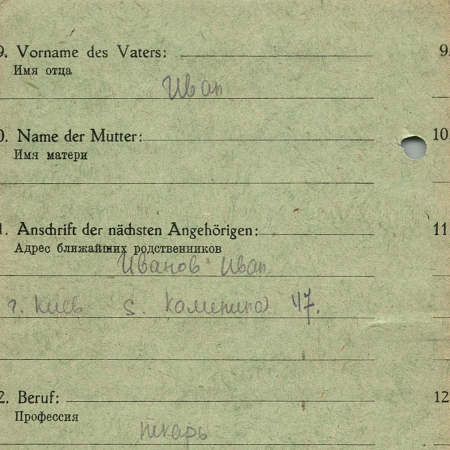 9. Vorname des Vaters: 9.
Имя отца
Иван
0. Name der Mutter: 10.
Имя матери
1. Anschrift der nächsten Angehörigen: 11
Адрес ближайших родственников
Иванов Иван
г. Киев Калинина 47.
2. Beruf: 12
Профессия
пекарь